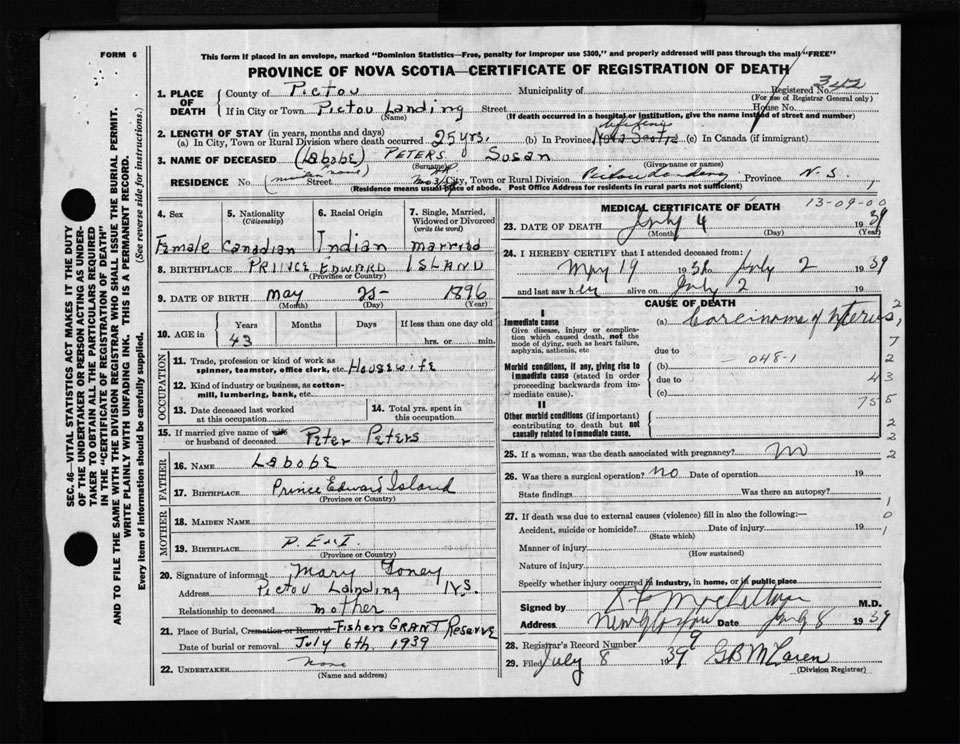 FORM 6
This form if placed in an envelope, marked "Dominion Statistics—Free, penalty for improper use $300," and properly addressed will pass through the mail "FREE"
PROVINCE OF NOVA SCOTIA—CERTIFICATE OF REGISTRATION OF DEATH
SEC. 46—VITAL STATISTICS ACT MAKES IT THE DUTY
OF THE UNDERTAKER OR PERSON ACTING AS UNDER-
TAKER TO OBTAIN ALL THE PARTICULARS REQUIRED
IN THE "CERTIFICATE OF REGISTRATION OF DEATH"
AND TO FILE THE SAME WITH THE DIVISION REGISTRAR WHO SHALL ISSUE THE BURIAL PERMIT.
WRITE PLAINLY WITH UNFADING INK. THIS IS A PERMANENT RECORD.
Every item of information should be carefully supplied. (See reverse side for instructions.)
1. PLACE OF DEATH
County of Pictou Municipality of Registered No. 342
(For use of Registrar General only)
If in City or Town Pictou Landing Street House No.
(Name) (If death occurred in a hospital or institution, give the name instead of street and number)
2. LENGTH OF STAY (in years, months and days)
(a) In City, Town or Rural Division where death occurred 25 yrs. (b) In Province Nova Scotia lifetime (c) In Canada (if immigrant)
3. NAME OF DECEASED (Labobe) PETERS Susan
(maiden name) (Surname) (Given name or names)
RESIDENCE No. Street City, Town or Rural Division Pictou Landing Province N.S.
(Residence means usual place of abode. Post Office Address for residents in rural parts not sufficient)
4. Sex Female
5. Nationality (Citizenship) Canadian
6. Racial Origin Indian
7. Single, Married, Widowed or Divorced (write the word) married
8. BIRTHPLACE PRINCE EDWARD ISLAND
(Province or Country)
9. DATE OF BIRTH May 25 1896
(Month) (Day) (Year)
10. AGE in Years Months Days If less than one day old
43 hrs. or min.
OCCUPATION
11. Trade, profession or kind of work as spinner, teamster, office clerk, etc. Housewife
12. Kind of industry or business, as cotton-mill, lumbering, bank, etc.
13. Date deceased last worked at this occupation
14. Total yrs. spent in this occupation
15. If married give name of wife or husband of deceased Peter Peters
FATHER
16. NAME Labobe
17. BIRTHPLACE Prince Edward Island
(Province or Country)
MOTHER
18. MAIDEN NAME
19. BIRTHPLACE P. E. I.
(Province or Country)
20. Signature of informant Mary Toney
Address Pictou Landing N.S.
Relationship to deceased mother
21. Place of Burial, Cremation or Removal Fishers GRANT Reserve
Date of burial or removal July 6th, 1939
22. UNDERTAKER None
(Name and address)
MEDICAL CERTIFICATE OF DEATH 13-09-00
23. DATE OF DEATH July 4 1939
(Month) (Day) (Year)
24. I HEREBY CERTIFY that I attended deceased from:
May 19 193 to July 2 1939
and last saw her alive on July 2 19
CAUSE OF DEATH
I
Immediate cause
Give disease, injury or complication which caused death, not the mode of dying, such as heart failure, asphyxia, asthenia, etc.
(a) Carcinoma of Uterus
due to
Morbid conditions, if any, giving rise to immediate cause (stated in order proceeding backwards from immediate cause).
(b) 048-1
due to
(c)
II
Other morbid conditions (if important) contributing to death but not causally related to immediate cause.
25. If a woman, was the death associated with pregnancy? no
26. Was there a surgical operation? No Date of operation 19
State findings Was there an autopsy?
27. If death was due to external causes (violence) fill in also the following:—
Accident, suicide or homicide? Date of injury 19
(State which)
Manner of injury
(How sustained)
Nature of injury
Specify whether injury occurred in industry, in home, or in public place
Signed by M.D.
Address New Glasgow Date 8 1939
28. Registrar's Record Number 9
29. Filed July 8 1939 GB McLaren
(Division Registrar)